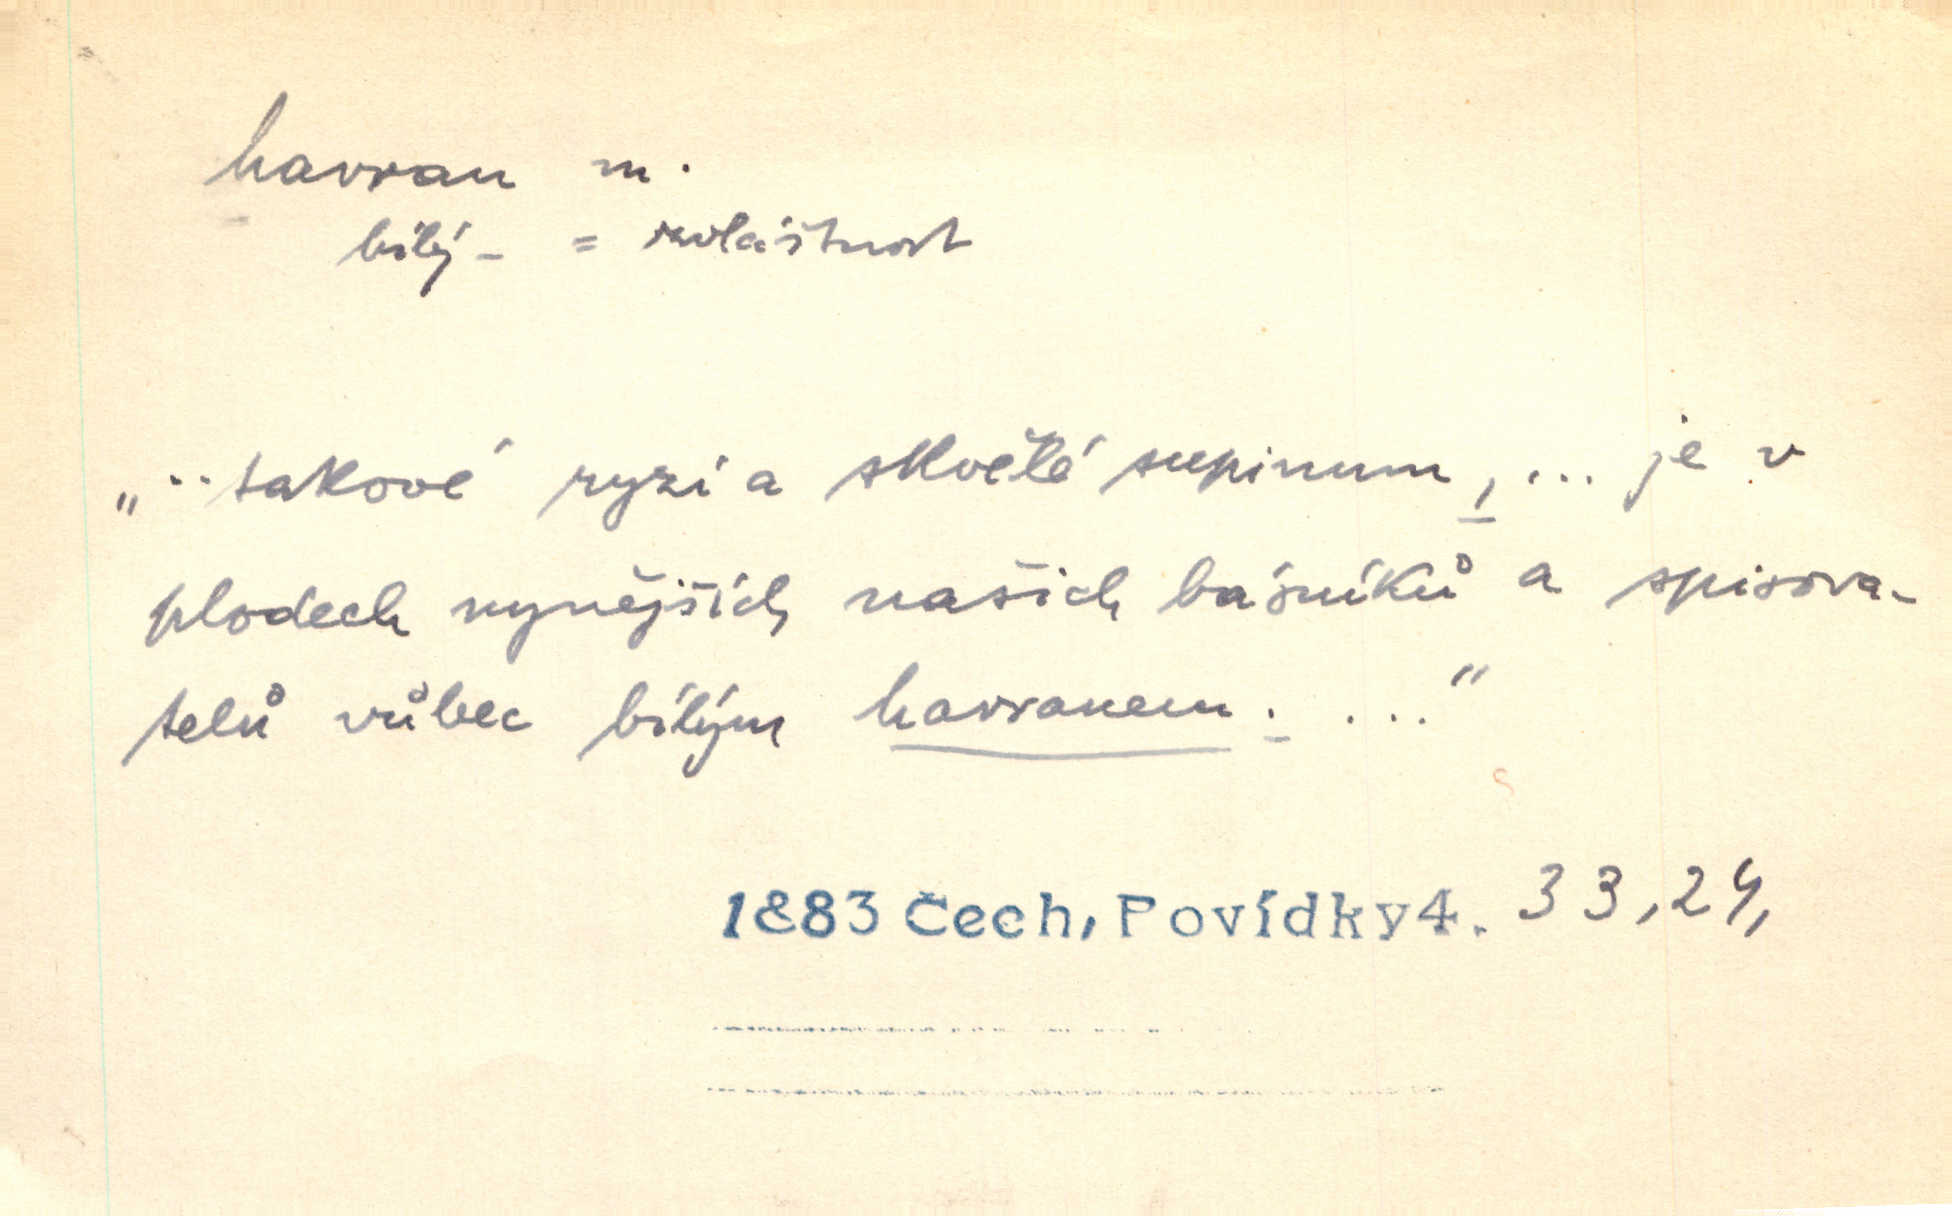 havran m.
bílý - = zvláštnost
„..takové ryzí a skvělé supinum, ... je v
plodech nynějších našich básníků a spisova-
telů vůbec bílým havranem. ..."
1883 Čech, Povídky 4. 33,24,